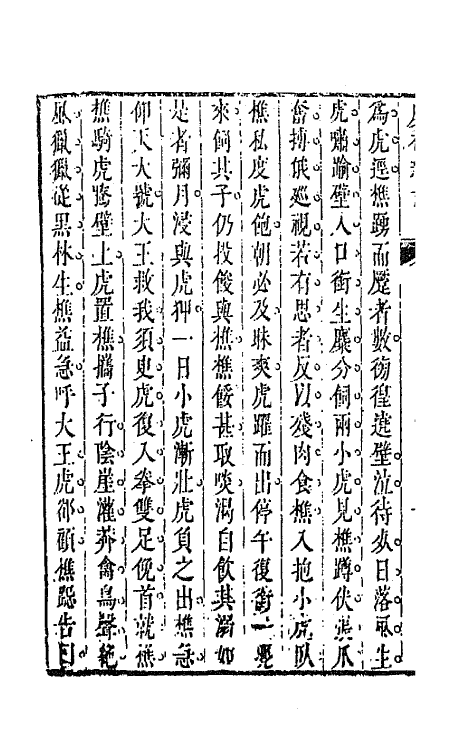 為虎逕樵踴而蹙者數徬徨遶壁泣待死日落風生
虎嘯踰壁入口銜生麋分飼兩小虎見樵蹲伏張爪
奮搏俄巡視若有思者反以殘肉食樵入抱小虎臥
樵私度虎飽朝必及昧爽虎躍而出停午復銜一麂
來飼其子仍投餕與樵樵餒甚取啖渴自飲其溺如
是者彌月浸與虎狎一日小虎漸壯虎負之出樵急
仰天大號大王救我須臾虎復入拳雙足俛首就樵
樵騎虎騰壁上虎置樵攜子行陰崖灌莽禽鳥聲絕
風獵獵從黑林生樵益急呼大王虎卻顧樵跽告曰